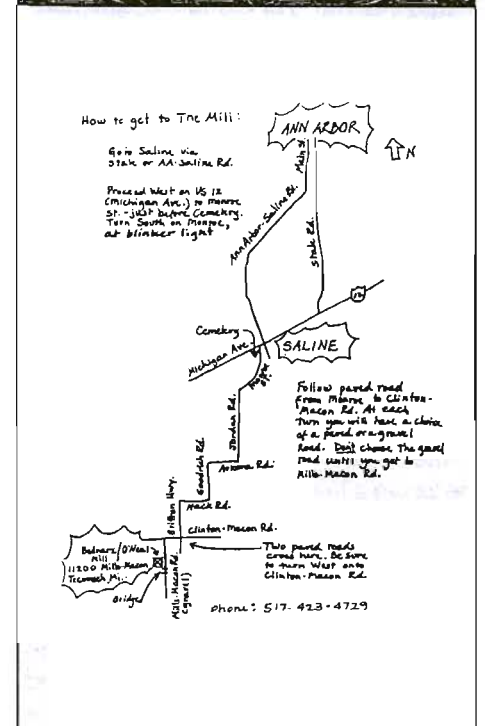 How to get to The Mill:
ANN ARBOR
N
Go to Saline via
State or AA-Saline Rd.
Main St.
Proceed West on US 12
(Michigan Ave.) to Monroe
St. - just before Cemetery.
Turn South on Monroe,
at blinker light
Ann Arbor-Saline Rd.
State Rd.
12
Cemetery
Michigan Ave.
SALINE
Monroe St.
Follow paved road
from Monroe to Clinton-
Macon Rd. At each
turn you will have a choice
of a paved or a gravel
Road. Don't choose The gravel
road until you get to
Mills-Macon Rd.
Jordan Rd.
Arkona Rd.
Goodrich Rd.
Mack Rd.
Britton Hwy.
Clinton-Macon Rd.
Two paved roads
cross here. Be Sure
to turn West onto
Clinton-Macon Rd.
Bednarz/O'Neal
Mill
11200 Mills-Macon
Tecumseh, Mi.
Bridge
Mills-Macon Rd.
(gravel)
phone: 517-423-4729